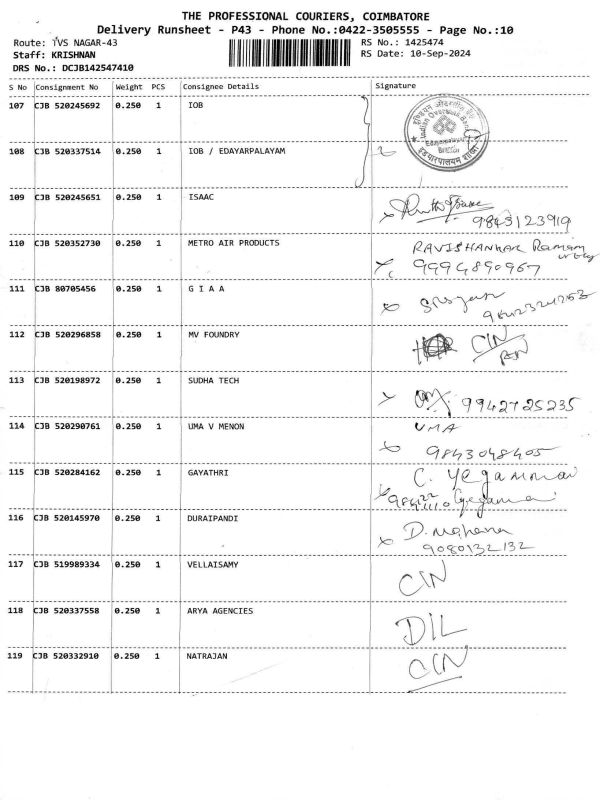 THE PROFESSIONAL COURIERS, COIMBATORE
Delivery Runsheet - P43 - Phone No.:0422-3505555 - Page No.:10
Route: TVS NAGAR-43 RS No.: 1425474
Staff: KRISHNAN RS Date: 10-Sep-2024
DRS No.: DCJB142547410
S No Consignment No Weight PCS Consignee Details Signature
107 CJB 520245692 0.250 1 IOB
इण्डियन ओवरसीज़ बैंक
Indian Overseas Bank
Branch
इडयारपालयम शाखा
108 CJB 520337514 0.250 1 IOB / EDAYARPALAYAM
109 CJB 520245651 0.250 1 ISAAC
9843123919
110 CJB 520352730 0.250 1 METRO AIR PRODUCTS RAVISHANKAR Raman
9994890967
111 CJB 80705456 0.250 1 G I A A
112 CJB 520296858 0.250 1 MV FOUNDRY CIN
113 CJB 520198972 0.250 1 SUDHA TECH
9942725235
114 CJB 520290761 0.250 1 UMA V MENON UMA
9843048405
115 CJB 520284162 0.250 1 GAYATHRI C. Yegammai
116 CJB 520145970 0.250 1 DURAIPANDI D. Mohana
9080132132
117 CJB 519989334 0.250 1 VELLAISAMY CIN
118 CJB 520337558 0.250 1 ARYA AGENCIES DIL
119 CJB 520332910 0.250 1 NATRAJAN CIN